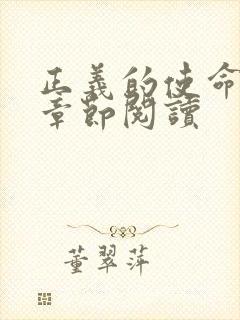 正義的使命
章節閱讀
董翠萍